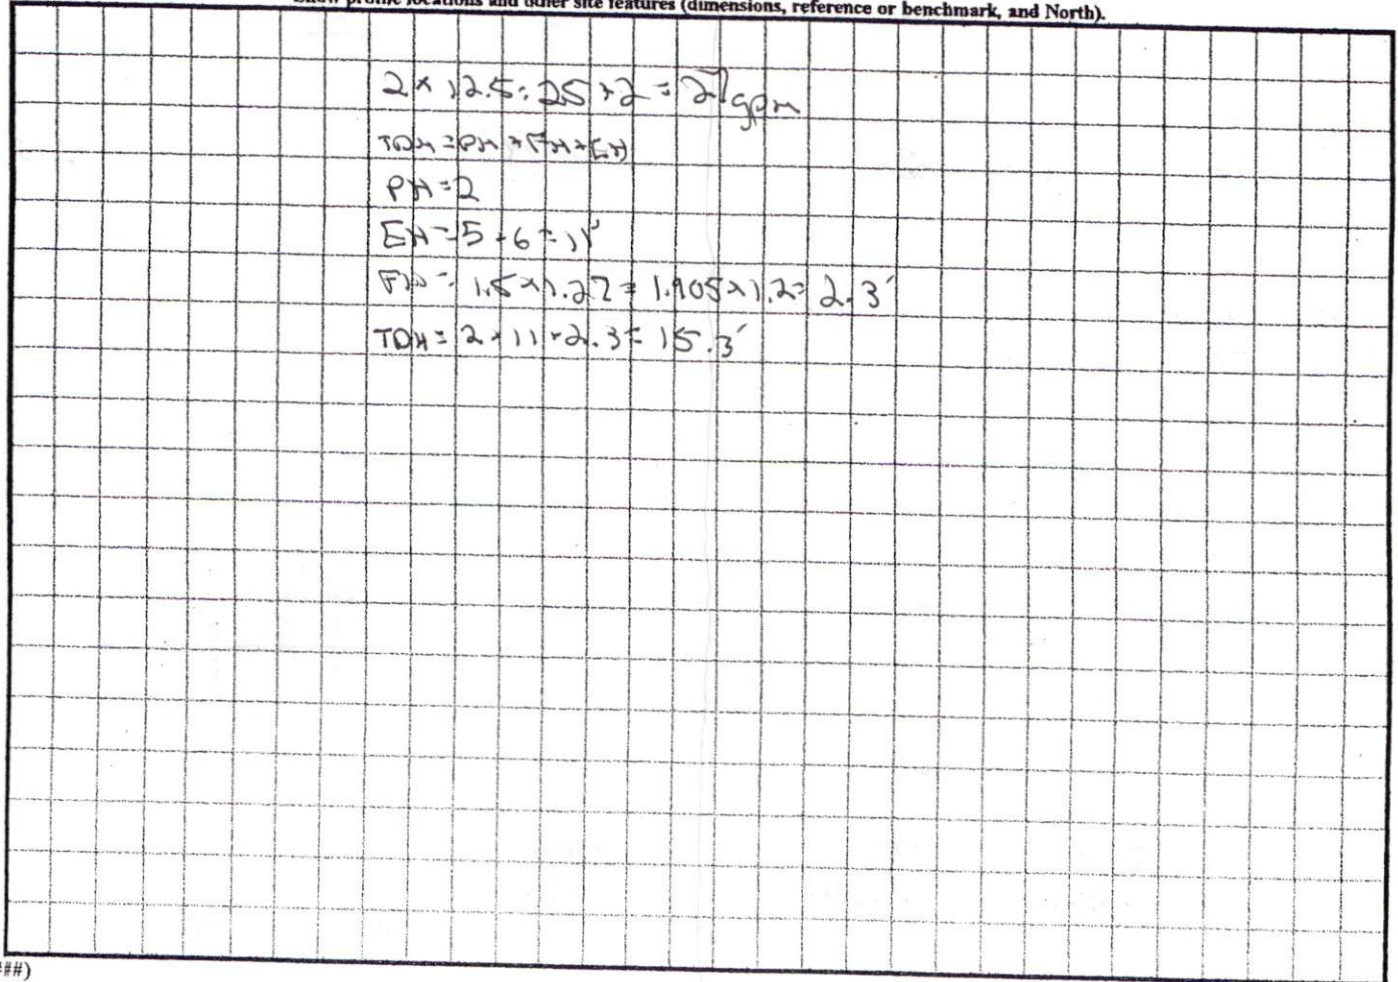 Show profile locations and other site features (dimensions, reference or benchmark, and North).
2 x 12.5 = 25 + 2 = 27 gpm
TDH = PH + FH + EH
PH = 2
EH = 5 + 6 = 11'
FH = 1.5 x 1.27 = 1.905 x 1.2 = 2.3'
TDH = 2 + 11 + 2.3 = 15.3'
##)